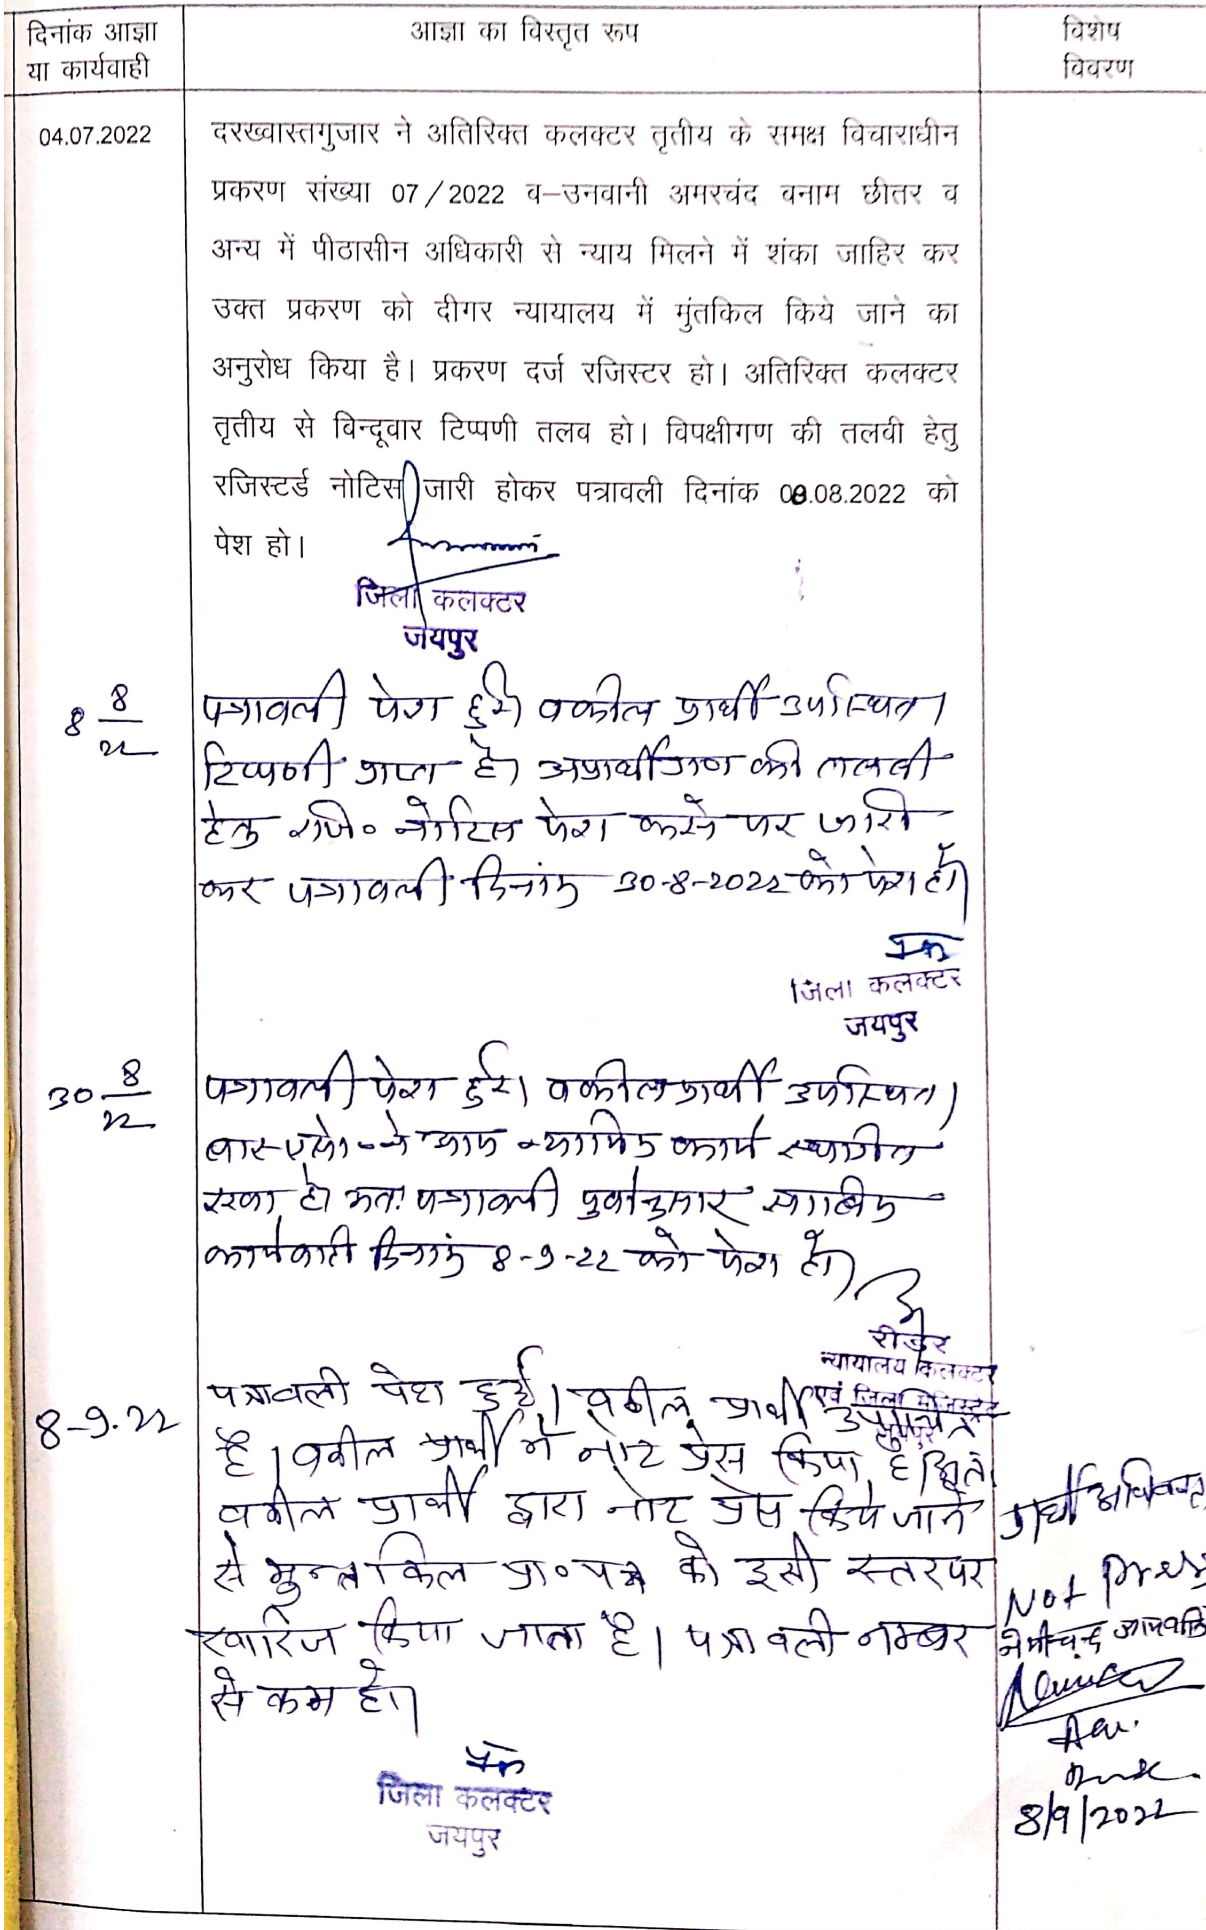 दिनांक आज्ञा
या कार्यवाही
आज्ञा का विस्तृत रूप
विशेष
विवरण
04.07.2022
दरख्वास्तगुजार ने अतिरिक्त कलक्टर तृतीय के समक्ष विचाराधीन
प्रकरण संख्या 07/2022 व-उनवानी अमरचंद वनाम छीतर व
अन्य में पीठासीन अधिकारी से न्याय मिलने में शंका जाहिर कर
उक्त प्रकरण को दीगर न्यायालय में मुंतकिल किये जाने का
अनुरोध किया है। प्रकरण दर्ज रजिस्टर हो। अतिरिक्त कलक्टर
तृतीय से विन्दूवार टिप्पणी तलव हो। विपक्षीगण की तलवी हेतु
रजिस्टर्ड नोटिस जारी होकर पत्रावली दिनांक 08.08.2022 को
पेश हो।
जिला कलक्टर
जयपुर
8 8/22
पत्रावली पेश हुई। वकील प्रार्थी उपस्थित।
टिप्पणी प्राप्त है। अप्रार्थीगण की तलबी
हेतु रजि० नोटिस पेश करने पर जारी
कर पत्रावली दिनांक 30-8-2022 को पेश हो।
जिला कलक्टर
जयपुर
30 8/22
पत्रावली पेश हुई। वकील प्रार्थी उपस्थित।
न्यायिक कार्य स्थगित
रखा है। अतः पत्रावली पुर्वानुसार साबिक
कार्यवाही दिनांक 8-9-22 को पेश हो।
रीडर
न्यायालय कलक्टर
एवं जिला मजिस्ट्रेट
जयपुर
8-9.22
पत्रावली पेश हुई। वकील प्रार्थी उपस्थित
है। वकील प्रार्थी ने नोट प्रेस किया है।
वकील प्रार्थी द्वारा नोट प्रेस किये जाने
से मुन्तकिल प्रा०पत्र को इसी स्तर पर
खारिज किया जाता है। पत्रावली नम्बर
से कम हो।
जिला कलक्टर
जयपुर
प्रार्थी अधिवक्ता
Not press
Adv.
8/9/2022